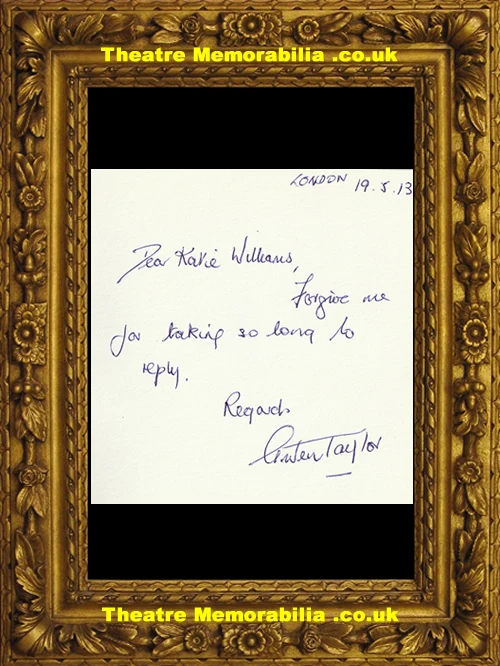 Theatre Memorabilia .co.uk
LONDON 19.5.13
Dear Katie Williams,
Forgive me
for taking so long to
reply.
Regards
Gwen Taylor
Theatre Memorabilia .co.uk